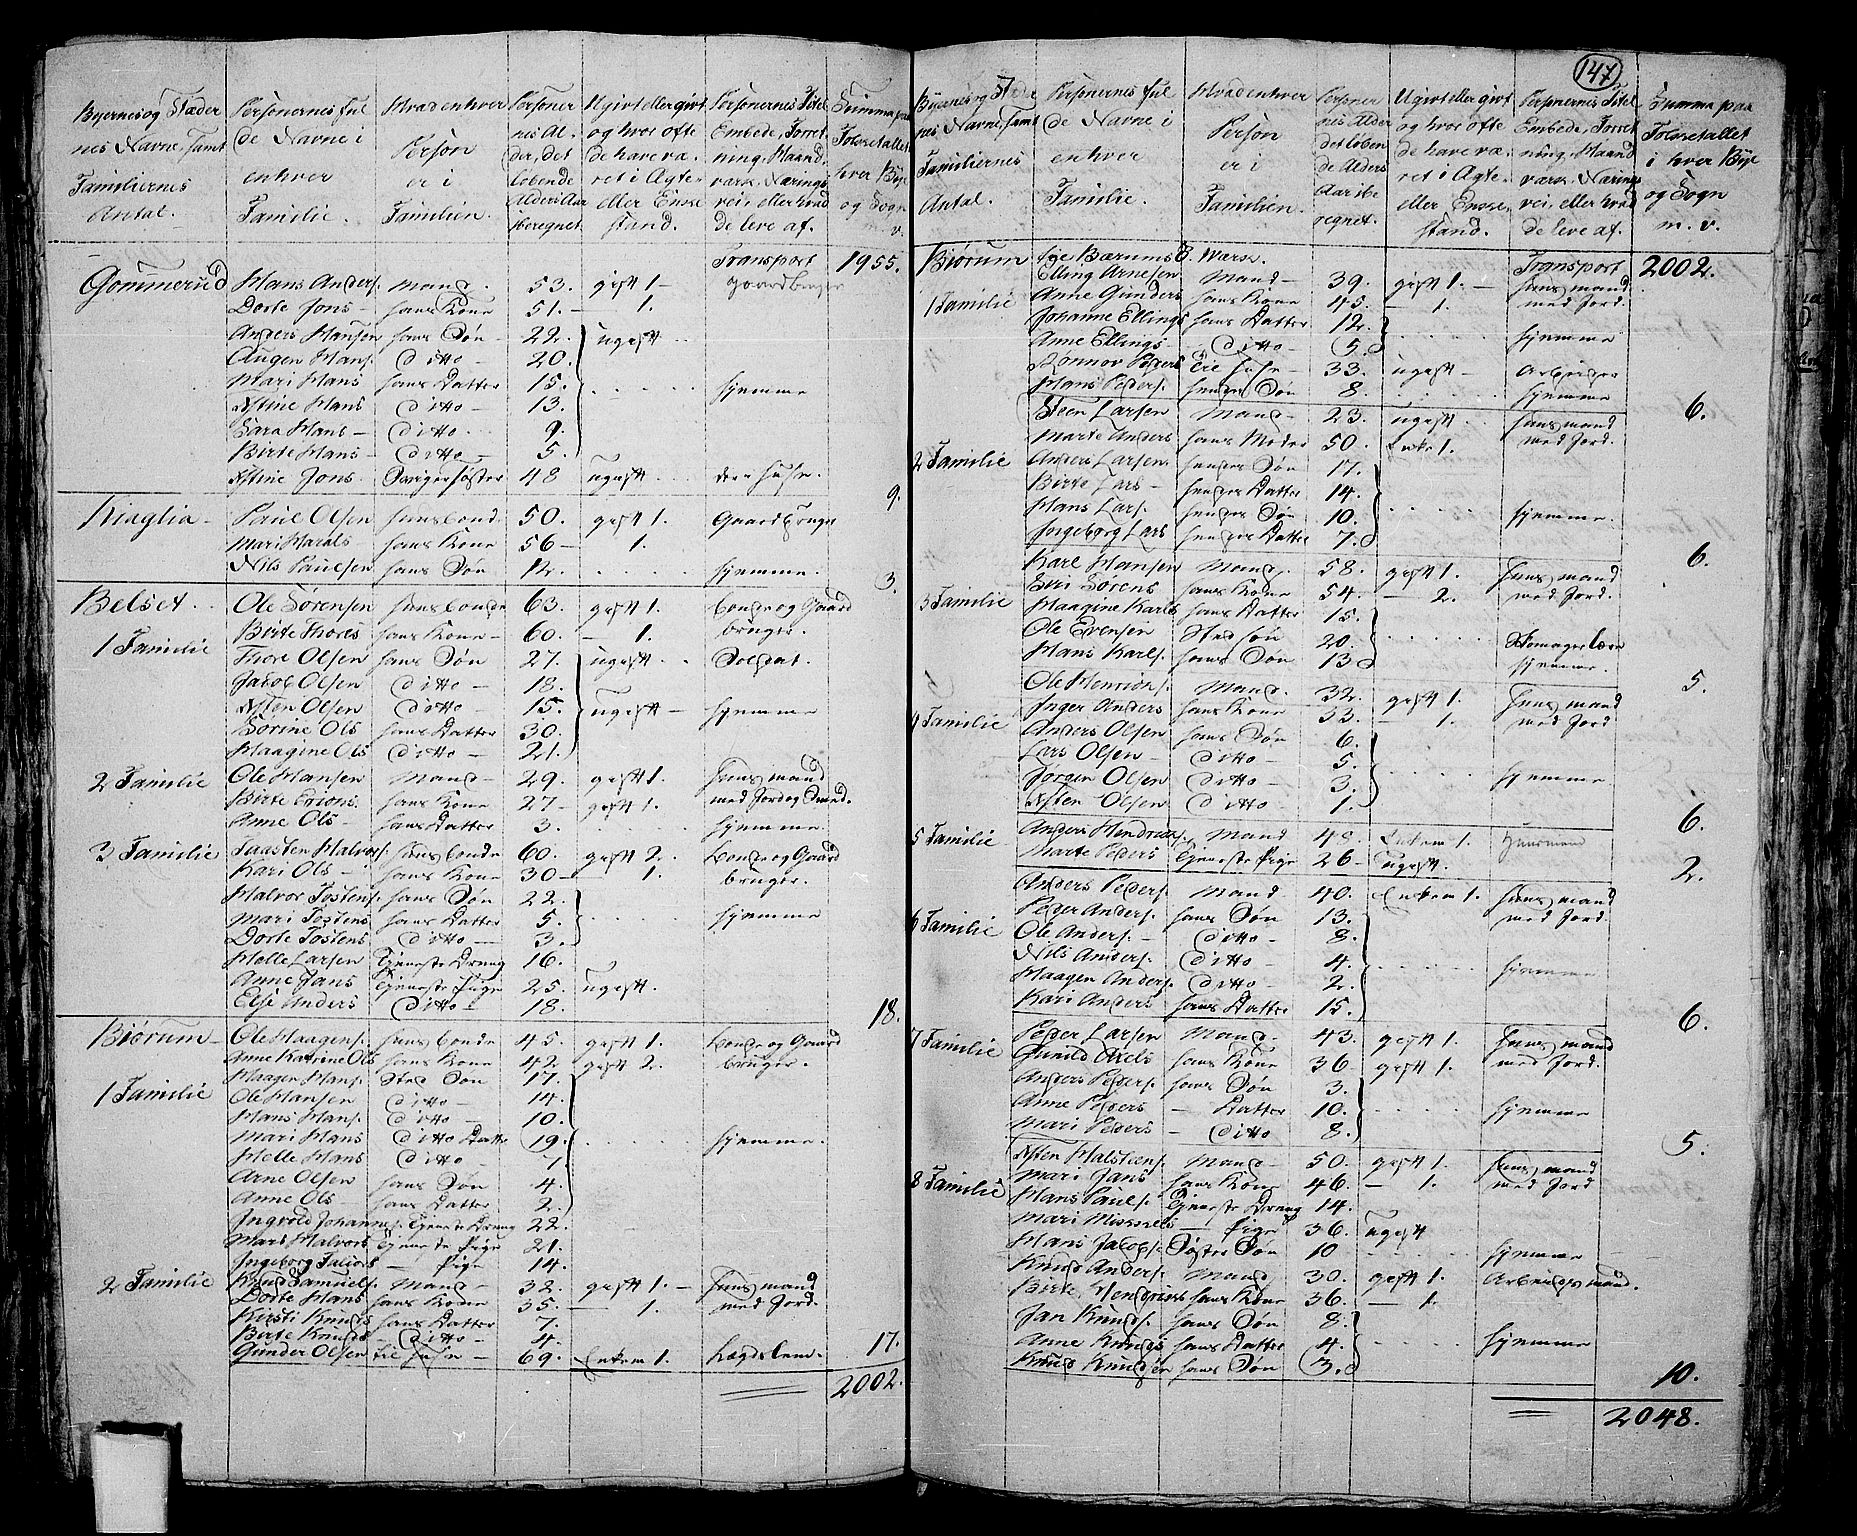 147
Byernes og Stædernes Navne, samt Familiernes Antal. | Personernes fulde Navne i enhver Familie. | Hvad enhver Person er i Familien. | Personernes Alder, det løbende Alders Aar iberegnet. | Ugivt eller givt og hvor ofte de have været i Ægte- eller Enkestand. | Personernes Titel Embede, Forretning, Haandværk, Næringsvei, eller hvad de leve af. | Summa paa Folketallet hver Bye og Sogn m. v.
Transport 1955.
Gommerud Hans Anders. Mand. 53. gift 1. Gaardbruger
Dorte Jons hans Kone 51. — 1.
Anders Hansen hans Søn 22. ugift
Augen Hans. Ditto 20.
Mari Hans hans Datter 15. hjemme
Astine Hans Ditto 13.
Sara Hans Ditto 9.
Birte Hans Ditto 5.
Astine Jons Svigersøster 48 ugift
9.
Kiaglia Paul Olsen huusbonde 50. gift 1. Gaardbruger
Mari Haralds hans Kone 56 — 1.
Nils Paulsen hans Søn 12. hjemme.
3.
Belset Ole Sørensen huusbonde 63. gift 1. bonde og Gaard
1 Familie Birte Thores hans Kone 60. — 1. bruger.
Thore Olsen hans Søn 27. ugift Soldat.
Jacob Olsen Ditto 18.
Asten Olsen Ditto 15. ugift hjemme
Sorine Ols hans Datter 30.
Haagine Ols Ditto 21.
2 Familie Ole Hansen Mand 29. gift 1. huusmand
Birte Erions. hans Kone 27 gift 1. med Jord og Smed.
Anne Ols hans Datter 3. hjemme.
3 Familie Taasten Halvors. huusbonde 60. gift 2. bonde og Gaard
Kari Ols hans Kone 30 — 1. bruger.
Halvor Tostens. hans Søn 22.
Mari Tostens hans Datter 5. hjemme
Dorte Tostens Ditto 3.
Helle Larsen Tjeneste Dreng 16.
Anne Jans Tjeneste Pige 25. ugift.
Else Anders Ditto 18.
18.
Biørum Ole Haagens. huusbonde 45. gift 1. bonde og Gaard
Anne Katrine Ols hans Kone 42 gift 2. bruger.
1 Familie Haagen Hans. Sted Søn 17.
Ole Hansen Ditto 14.
Hans Hans. Ditto 10.
Mari Hans Ditto Datter 19. hjemme.
Helle Hans Ditto 7.
Arne Olsen hans Søn 4.
Anne Ols hans Datter 2.
Ingvold Johannes. Tjeneste Dreng 22.
Mari Halvors Tjeneste Pige 21.
Ingeborg — Pige 14.
2 Familie Knud Samuels. Mand 32. gift 1. huusmand
Dorte Hans hans Kone 35. — 1. med Jord.
Kirsti Knuds hans Datter 7.
Birte Knuds Ditto 4.
Gunder Olsen til huse 69. Enkem 1. Lægdslem.
17.
2002.
Byernes og Stædernes Navne, samt Familiernes Antal. | Personernes fulde Navne i enhver Familie. | Hvad enhver Person er i Familien. | Personernes Alder det løbende Alders Aar iberegnet. | Ugivt eller givt og hvor ofte de have været i Ægte- eller Enkestand. | Personernes Titel Embede, Forretning, Haandværk, Næringsvei, eller hvad de leve af. | Summa paa Folketallet i hver Bye og Sogn m. v.
Biørum Bærums Værk. Transport 2002.
Elling Arnesen Mand 39. gift 1. huusmand
1 Familie Anne Gunders hans Kone 45. — 1. med Jord.
Johanne Ellings hans Datter 12.
Anne Ellings Ditto 5. hjemme
Ronnov Peders 33. ugift
Hans Peders. hendes Søn 8. hjemme
6.
Steen Larsen Mand 23. ugift. huusmand
Marte Anders hans Moder 50. Enke 1. med Jord.
2 Familie Anders Larsen hendes Søn 17.
Birte Lars hendes Datter 14.
Hans Lars. hendes Søn 10. hjemme.
Ingeborg Lars hendes Datter 7.
6.
Karl Hansen Mand 58. gift 1. huusmand
Evi Sørens hans Kone 54. — 2. med Jord.
3 Familie Haagine Karls hans Datter 15.
Ole Evensen Sted søn 20. Skomager
Hans Karls. hans Søn 13 hjemme.
5.
Ole Henriks. Mand 32. gift 1. huusmand
4 Familie Inger Anders hans Kone 33. — 1. med Jord.
Anders Olsen hans Søn 6.
Lars Olsen Ditto 5.
Jørgen Olsen Ditto 3. hjemme
Asten Olsen Ditto 1.
6.
5 Familie Anders Hendrichs. Mand 48. Enkem 1. Huusmand
Marte Peders Tjeneste Pige 26 ugift.
2.
Anders Peders. Mand 40. Enkem 1. huusmand
6 Familie Peder Anders. hans Søn 13. med Jord.
Ole Anders. Ditto 8.
Nils Anders. Ditto 4. hjemme
Haagen Anders. Ditto 2.
Kari Anders hans Datter 15.
6.
7 Familie Peder Larsen Mand 43. gift 1. huusmand
Gunild Axels hans Kone 36 gift 1. med Jord.
Anders Peders. hans Søn 3.
Anne Peders — Datter 10. hjemme
Mari Peders Ditto 8.
5.
Asten Halsteens. Mand 50. gift 1. huusmand
8 Familie Mari Jans hans Kone 46. — 1. med Jord
Hans Pauls. Tjeneste Dreng 14.
Mari — Pige 36. ugift
Hans Jacobs. Søster Søn 10 hjemme
Knud Anders. Mand 30. gift 1. Arbeidsmand.
Birte Hendrichs hans Kone 36. — 1.
Jan Knuds. hans Søn 8.
Anne Knuds hans Datter 4. hjemme
Knud Knudsen hans Søn 3.
10.
2048.